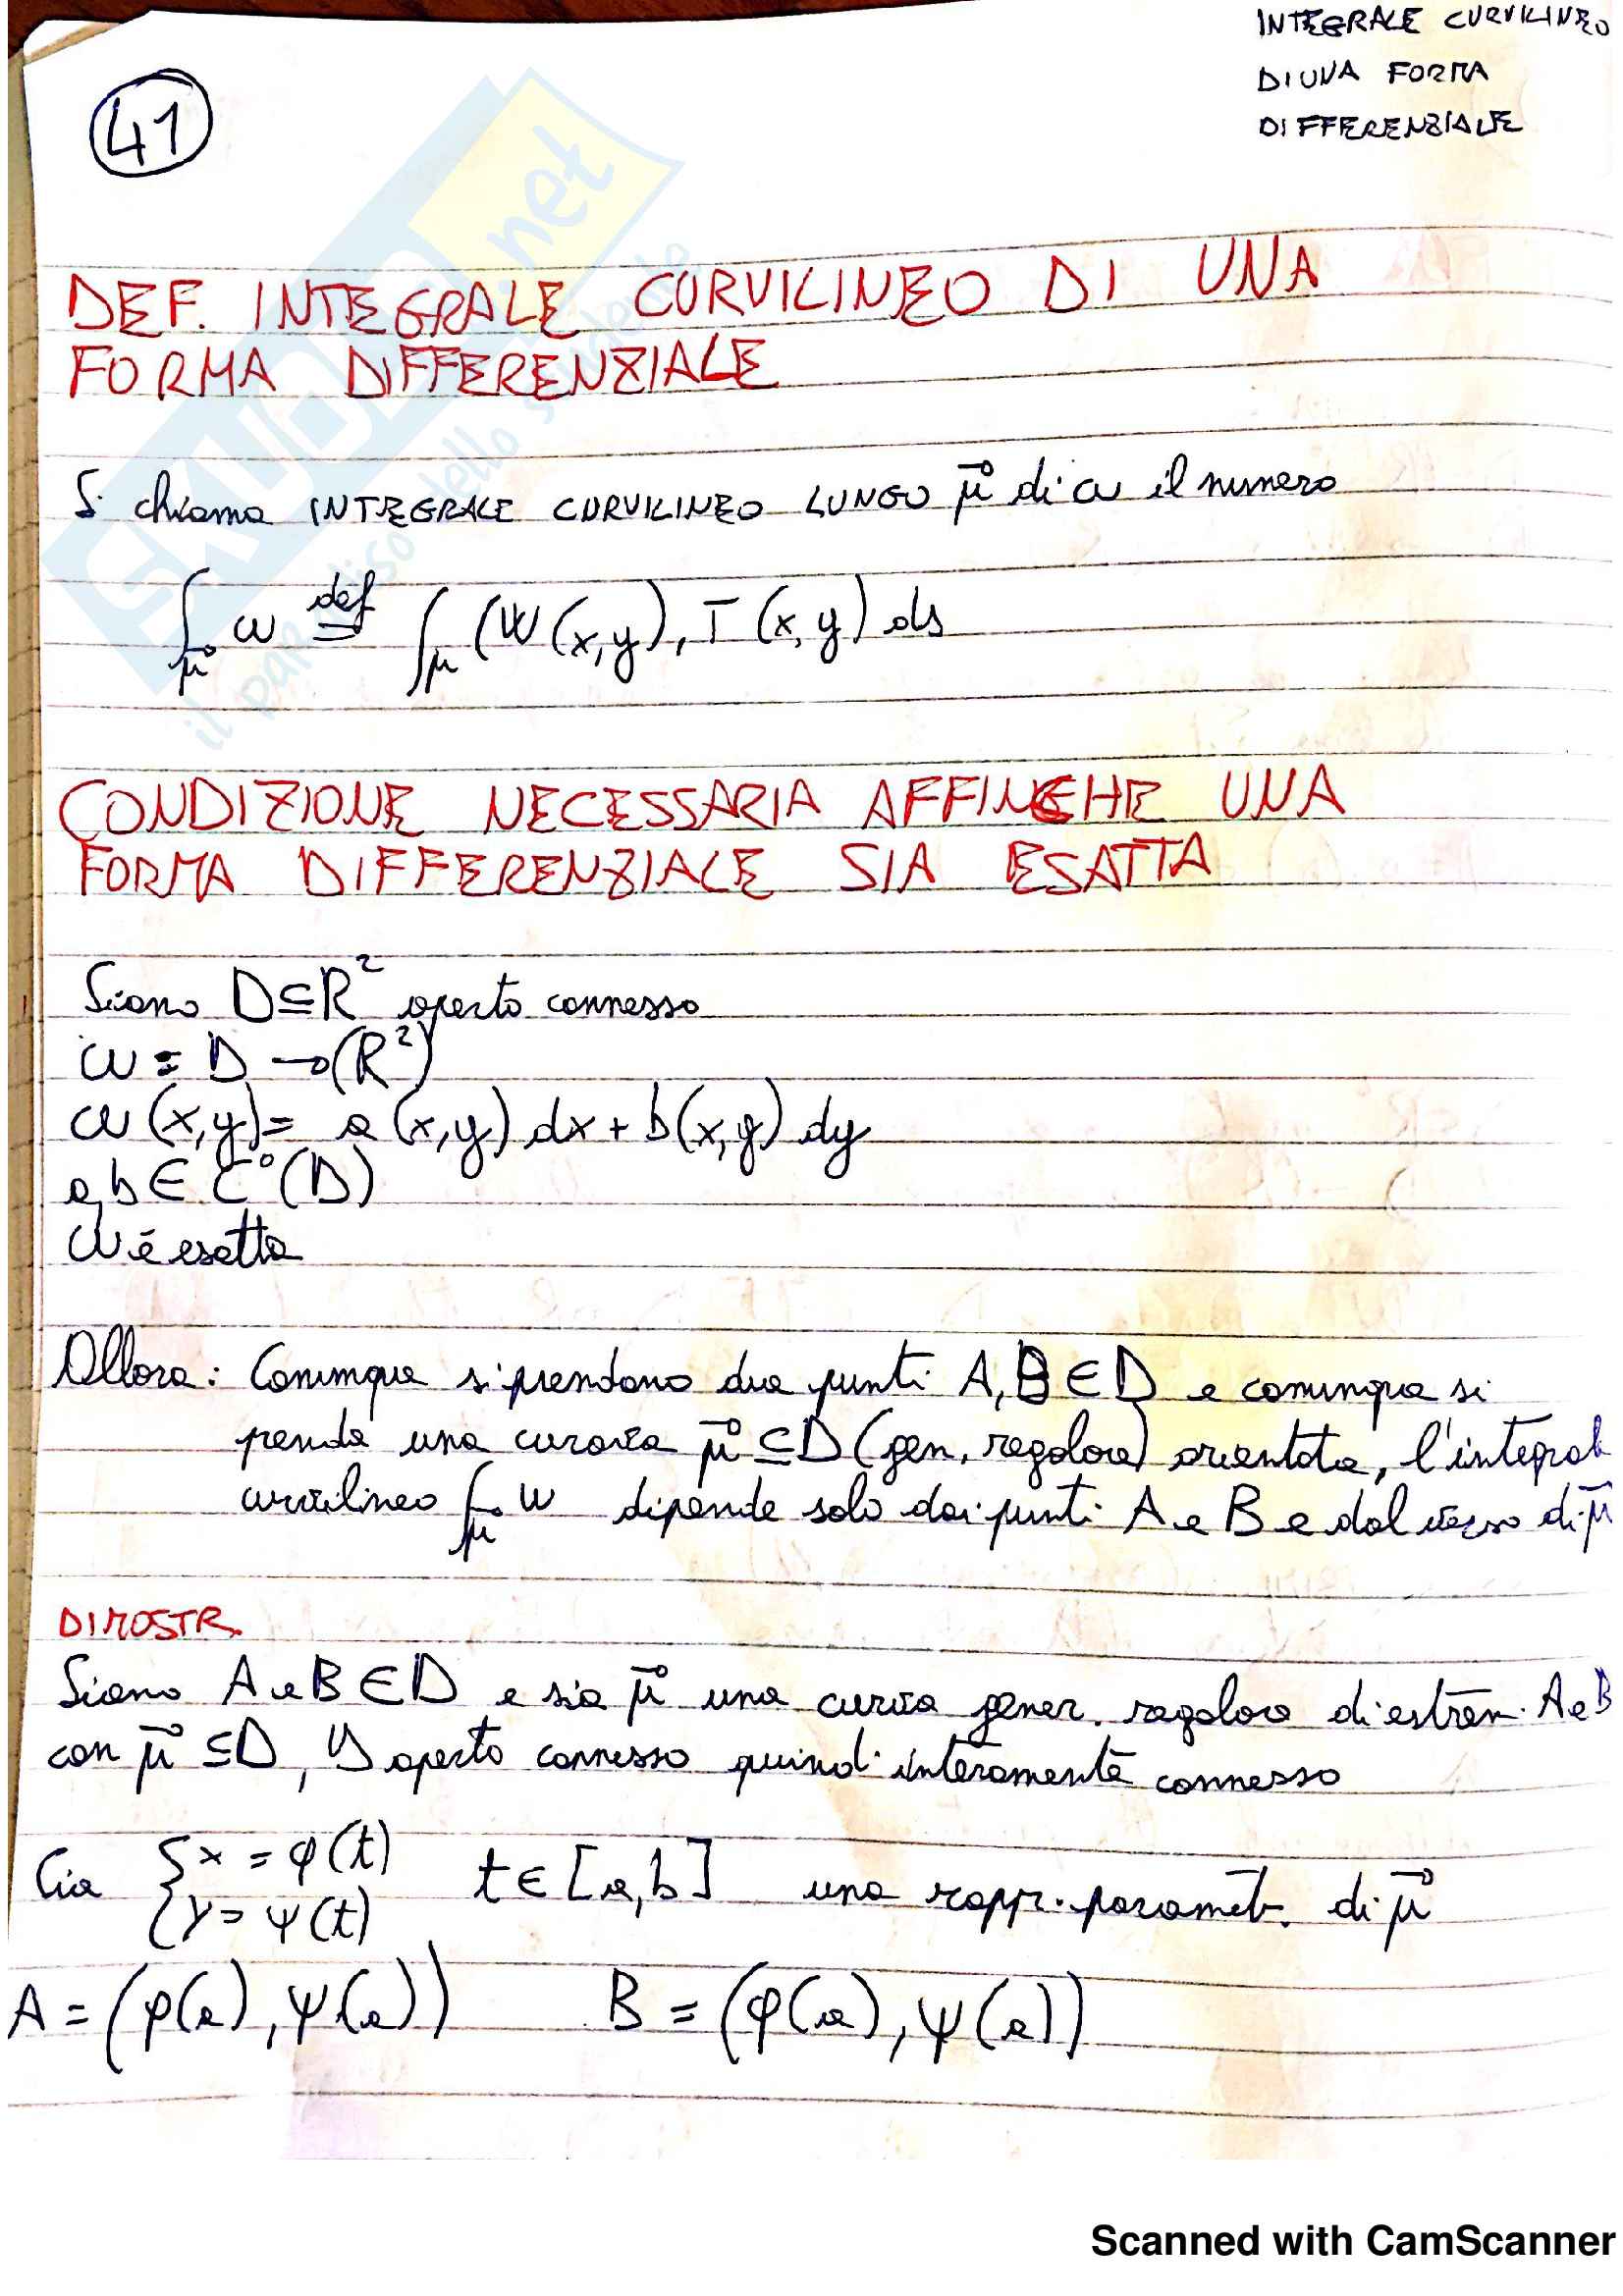 INTEGRALE CURVILINEO
DI UNA FORMA
DIFFERENZIALE
41
DEF. INTEGRALE CURVILINEO DI UNA
FORMA DIFFERENZIALE
Si chiama INTEGRALE CURVILINEO LUNGO μ⃗ di ω il numero
∫_μ⃗ ω ≝ ∫_μ (W(x,y), T(x,y) ds
CONDIZIONE NECESSARIA AFFINCHE UNA
FORMA DIFFERENZIALE SIA ESATTA
Siano D⊆R² aperto connesso
ω = D → (R²)
ω(x,y) = a(x,y) dx + b(x,y) dy
a,b ∈ C°(D)
ω è esatta
Allora: Comunque si prendano due punti A,B ∈ D e comunque si
prenda una curva μ⃗ ⊆ D (gen. regolare) orientata, l'integral
curvilineo ∫_μ⃗ ω dipende solo dai punti A e B e dal verso di μ⃗
DIMOSTR.
Siano A e B ∈ D e sia μ⃗ una curva gener. regolare di estrem. A e B
con μ⃗ ⊆ D, D aperto connesso quindi internamente connesso
Sia {x = φ(t) t ∈ [a,b] una rappr. paramet. di μ⃗
{y = ψ(t)
A = (φ(a), ψ(a)) B = (φ(a), ψ(a))
SKUOLA.net
il paradiso dello studente
Scanned with CamScanner